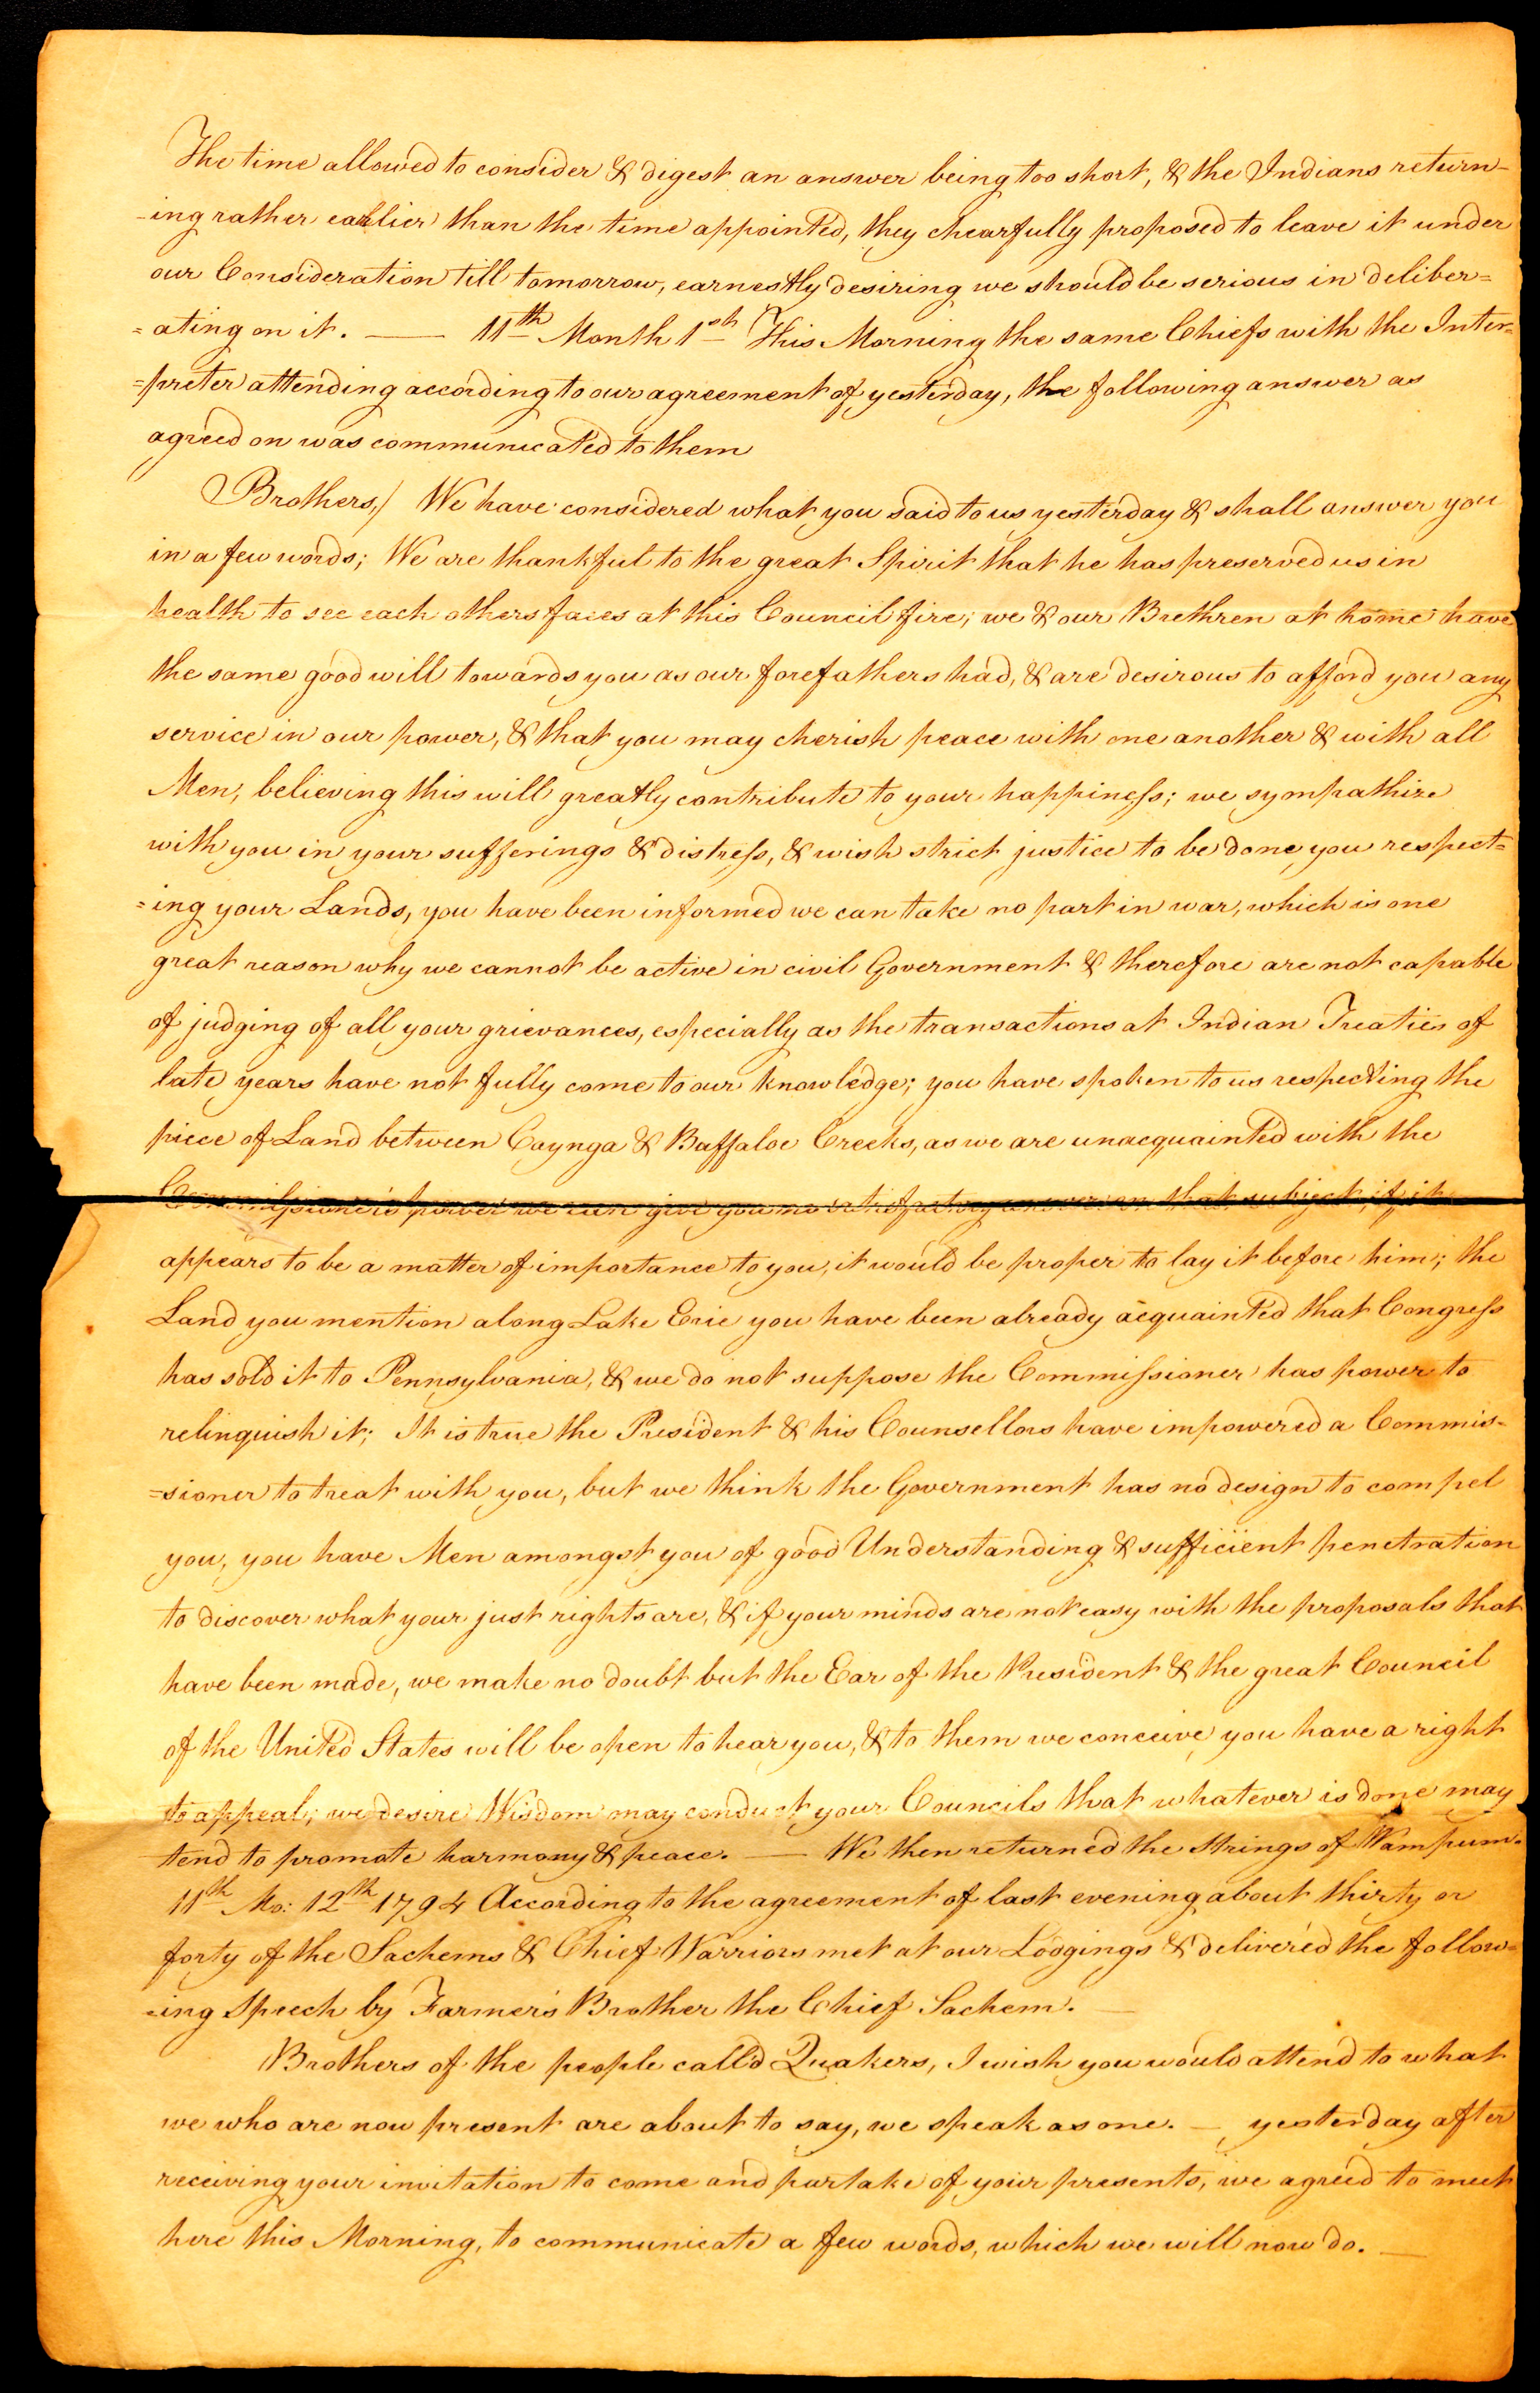 The time allowed to consider & digest an answer being too short, & the Indians return-
-ing rather earlier than the time appointed, they chearfully proposed to leave it under
our Consideration till tomorrow, earnestly desiring we should be serious in deliber=
=ating on it. — 11th Month 1st This Morning the same Chiefs with the Inter=
=preter attending according to our agreement of yesterday, the following answer as
agreed on was communicated to them
Brothers,/ We have considered what you said to us yesterday & shall answer you
in a few words; We are thankful to the great Spirit that he has preserved us in
health to see each others faces at this Council fire; we & our Brethren at home have
the same good will towards you as our forefathers had, & are desirous to afford you any
service in our power, & that you may cherish peace with one another & with all
Men, believing this will greatly contribute to your happiness; we sympathize
with you in your sufferings & distress, & wish strict justice to be done you respect=
=ing your Lands, you have been informed we can take no part in war, which is one
great reason why we cannot be active in civil Government & therefore are not capable
of judging of all your grievances, especially as the transactions at Indian Treaties of
late years have not fully come to our knowledge; you have spoken to us respecting the
piece of Land between Caynga & Baffaloe Creeks, as we are unacquainted with the
Commissioner's power we can give you no satisfactory answer on that subject, if it
appears to be a matter of importance to you, it would be proper to lay it before him; the
Land you mention along Lake Erie you have been already acquainted that Congress
has sold it to Pennsylvania, & we do not suppose the Commissioner has power to
relinquish it; It is true the President & his Counsellors have impowered a Commis-
=sioner to treat with you, but we think the Government has no design to compel
you, you have Men amongst you of good Understanding & sufficient penetration
to discover what your just rights are, & if your minds are not easy with the proposals that
have been made, we make no doubt but the Ear of the President & the great Council
of the United States will be open to hear you, & to them we conceive you have a right
to appeal; we desire Wisdom may conduct your Councils that whatever is done may
tend to promote harmony & peace. — We then returned the Strings of Wampum.
11th Mo: 12th 1794 According to the agreement of last evening about thirty or
forty of the Sachems & Chief Warriors met at our Lodgings & delivered the follow=
=ing Speech by Farmer's Brother the Chief Sachem. —
Brothers of the people call'd Quakers, I wish you would attend to what
we who are now present are about to say, we speak as one. — yesterday after
receiving your invitation to come and partake of your presents, we agreed to meet
here this Morning, to communicate a few words, which we will now do. —